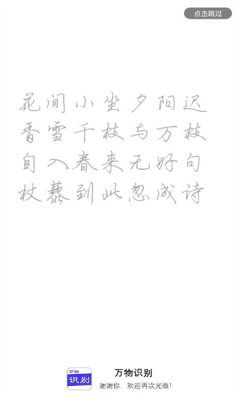 点击跳过
花间小坐夕阳迟
香雪千枝与万枝
自入春来无好句
杖藜到此忽成诗
万物
识别
万物识别
谢谢你，欢迎再次光临！